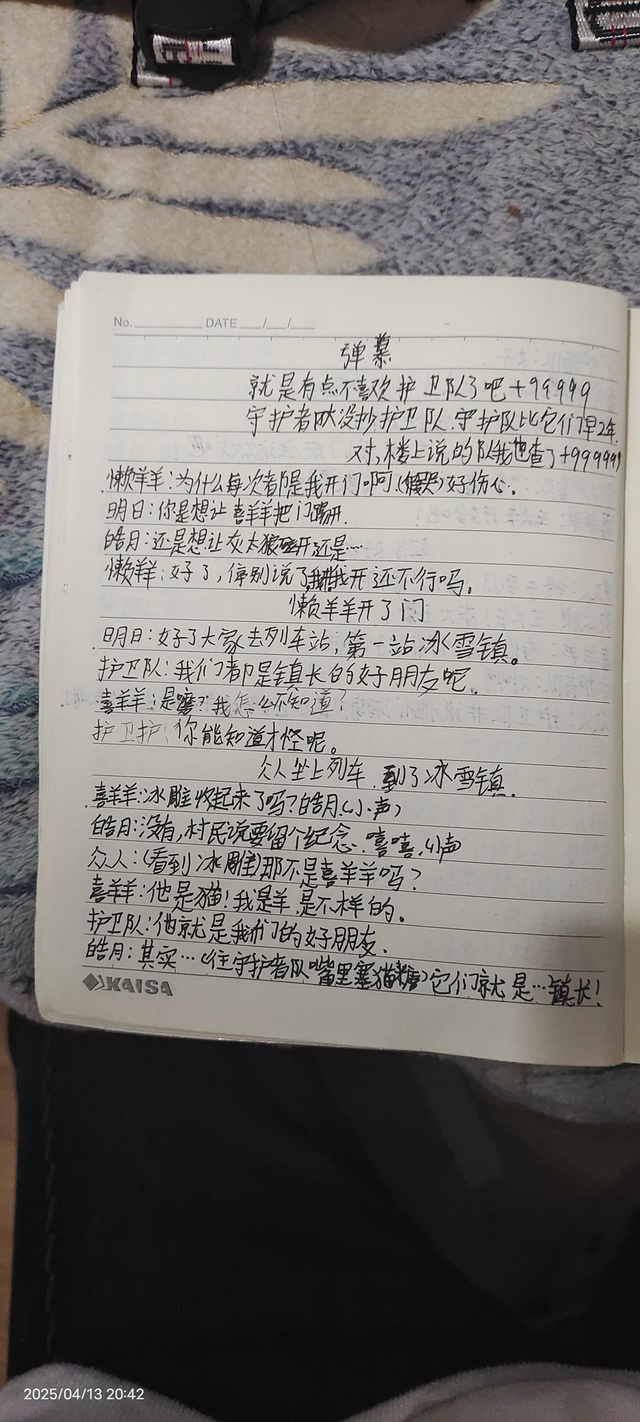 No. DATE / /
弹幕
就是有点不喜欢护卫队了吧+99999
守护者队没抄护卫队.守护队比它们早2年.
对,楼上说的队我也查了+999999
懒羊羊:为什么每次都是我开门啊,(假哭)好伤心.
明日:你是想让喜羊羊把门踢开.
皓月:还是想让灰太狼砸开还是…
懒羊羊:好了,停别说了我开还不行吗。
懒羊羊开了门
明日:好了大家去列车站,第一站冰雪镇。
护卫队:我们都是镇长的好朋友呢.
喜羊羊:是嘛?我怎么不知道?
护卫护:你能知道才怪呢。
众人坐上列车.到了冰雪镇.
喜羊羊:冰雕收起来了吗?皓月(小声)
皓月:没有,村民说要留个纪念.嘻嘻.小声
众人:(看到冰雕)那不是喜羊羊吗?
喜羊羊:他是猫!我是羊.是不样的。
护卫队:他就是我们的好朋友.
皓月:其实…(往守护者队嘴里塞猫糖)它们就是…镇长!
KAISA
2025/04/13 20:42